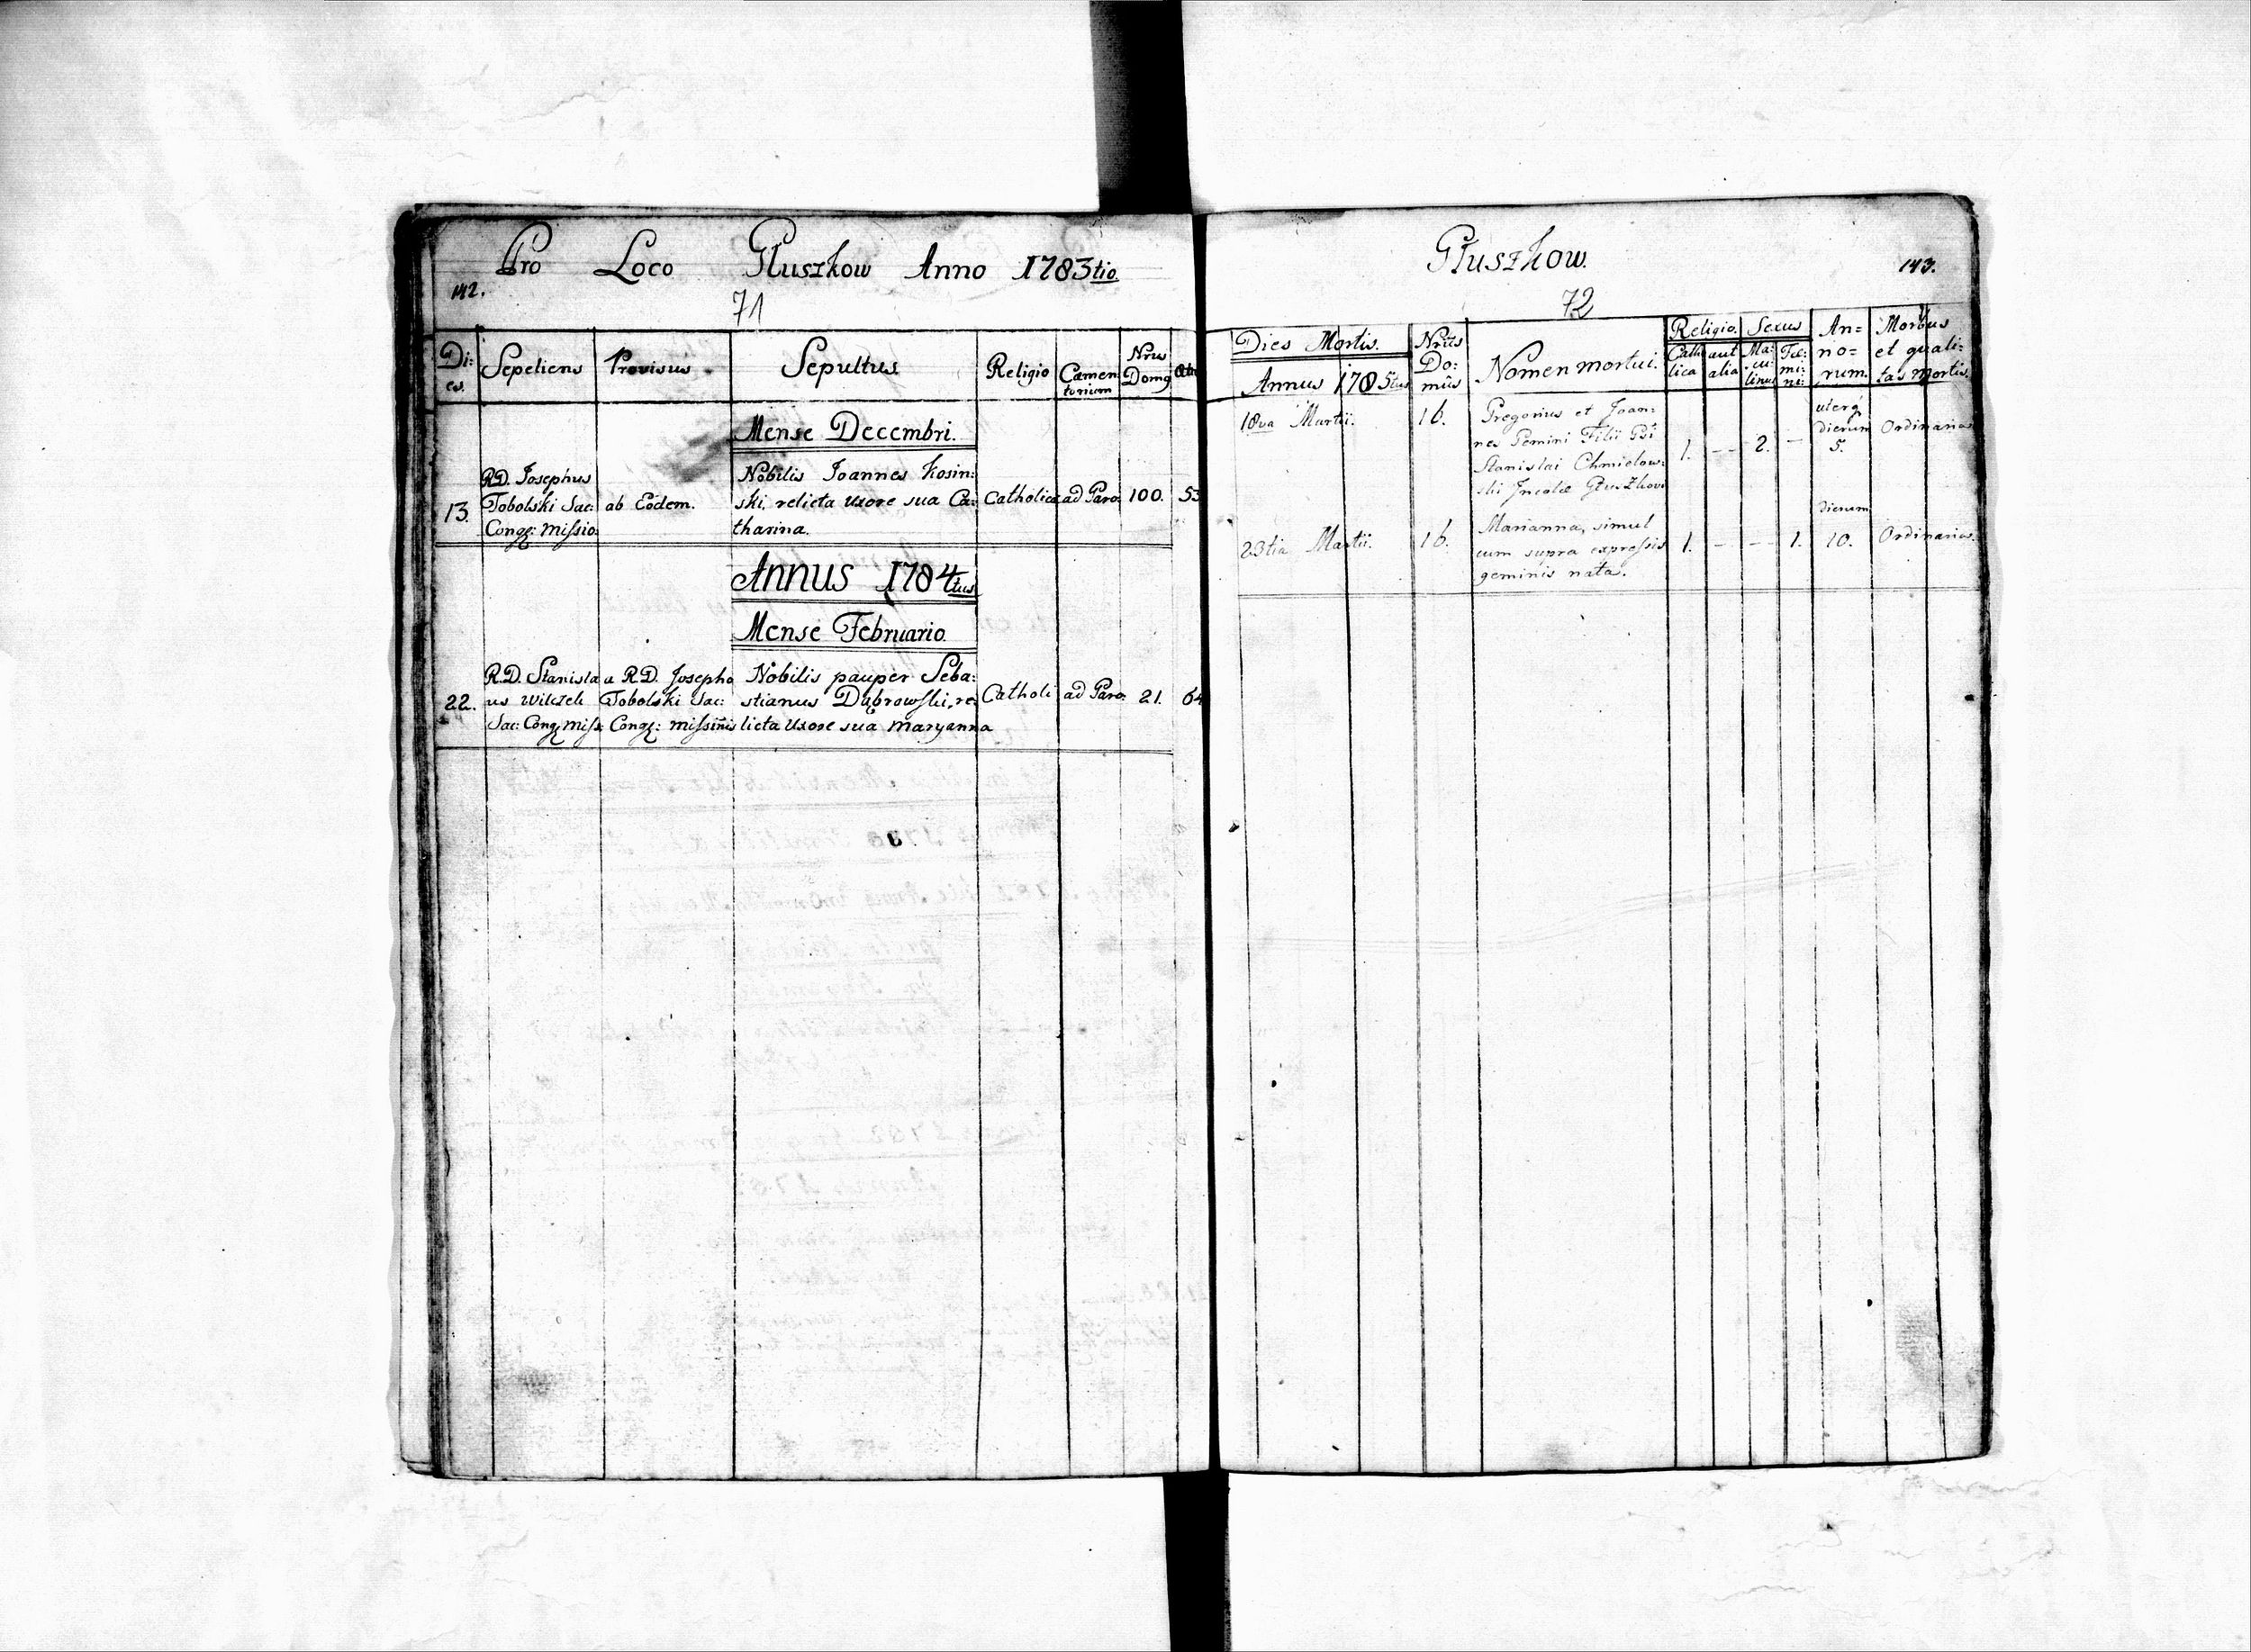 Pro Loco Głuszkow Anno 1783tio.
142.
71
Di: es.
Sepeliens
Provisus.
Sepultus
Religio
Camen: torium
Nrus Domq
Mense Decembri.
13.
R.D. Josephus
Tobolski Sac:
Congq: Missio:
ab Eodem.
Nobilis Joannes Kosin:
ski, relicta uxore sua Ca:
tharina.
Catholica
ad Paro:
100.
53
Annus 1784tus
Mense Februario
22.
R.D. Stanisla
us Wilczek
Sac: Congq Miss:
a R.D. Josepho
Tobolski Sac:
Congq: missiñis
Nobilis pauper Seba:
stianus Dąbrowski, re:
licta uxore sua Maryanna
Catholi
ad Paro:
21.
64
Głuszkow.
143.
72
Dies Mortis.
Annus 1785tus
Nrûs
Do:
mûs
Nomen mortui.
Religio.
Cath
lica
aut
alia
Sexus
Ma:
scu:
linus
Fæ:
mi:
ni:
An=
no=
rum.
Morbus
et quali:
tas mortis.
18va Martii.
16.
Gregorius et Joan:
nes Gemini Filii Gsi
Stanislai Chmielow:
ski Incolæ Głuszkow
1.
--
2.
-
uterq
dierum
5.
Ordinarius
23tia Martii.
16.
Marianna, simul
cum supra expressis
geminis nata.
1.
-
--
1.
dierum
10.
Ordinarius.